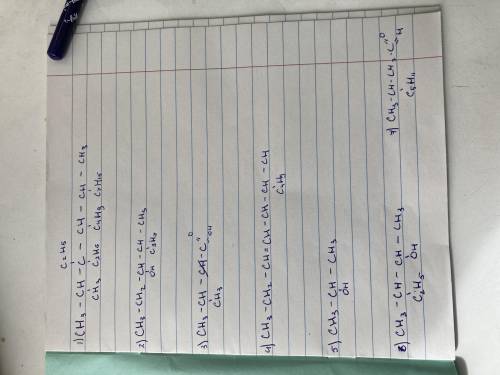 C2H5
1) CH3 - CH - C - CH - CH - CH3
CH3 C2H5 C4H9 C7H15
2) CH3 - CH2 - CH - CH - CH3
OH C3H7
3) CH3 - CH - C O
CH3 OH
4) CH3 - CH2 - CH = CH - CH - CH - CH
C4H9
5) CH3 - CH - CH3
OH
6) CH3 - CH - CH - CH3
C2H5 OH
7) CH3 - CH - CH2 - C O
C5H11 OH